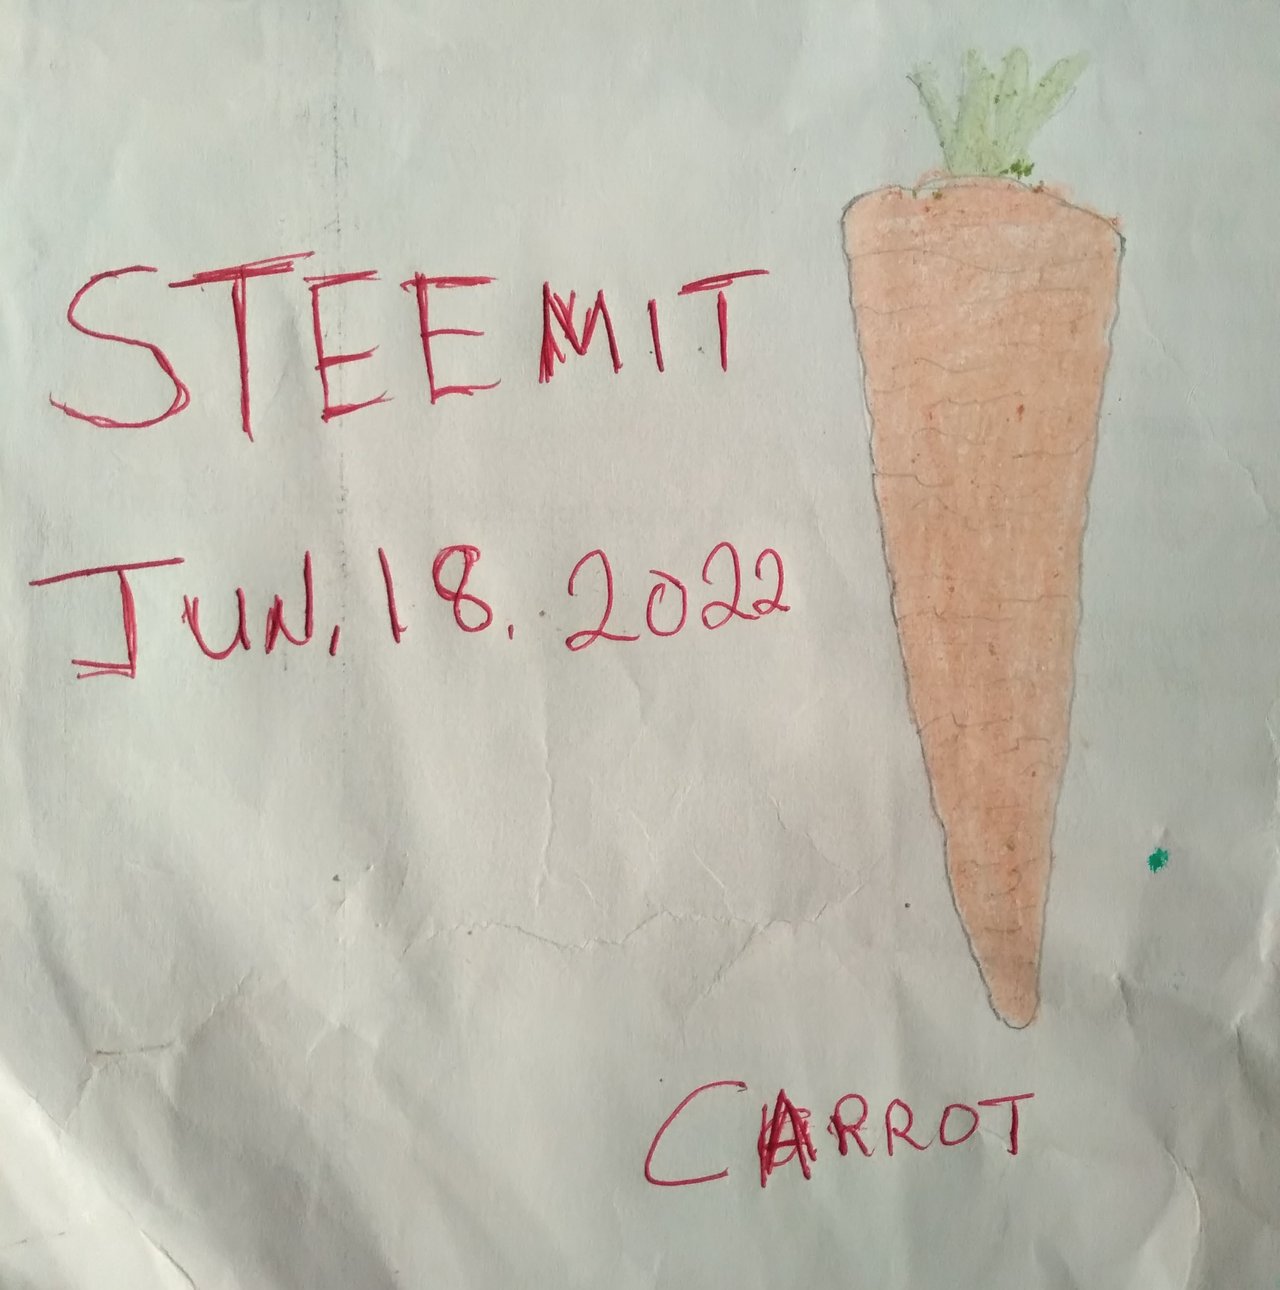 STEEMIT
JUN. 18. 2022
CARROT